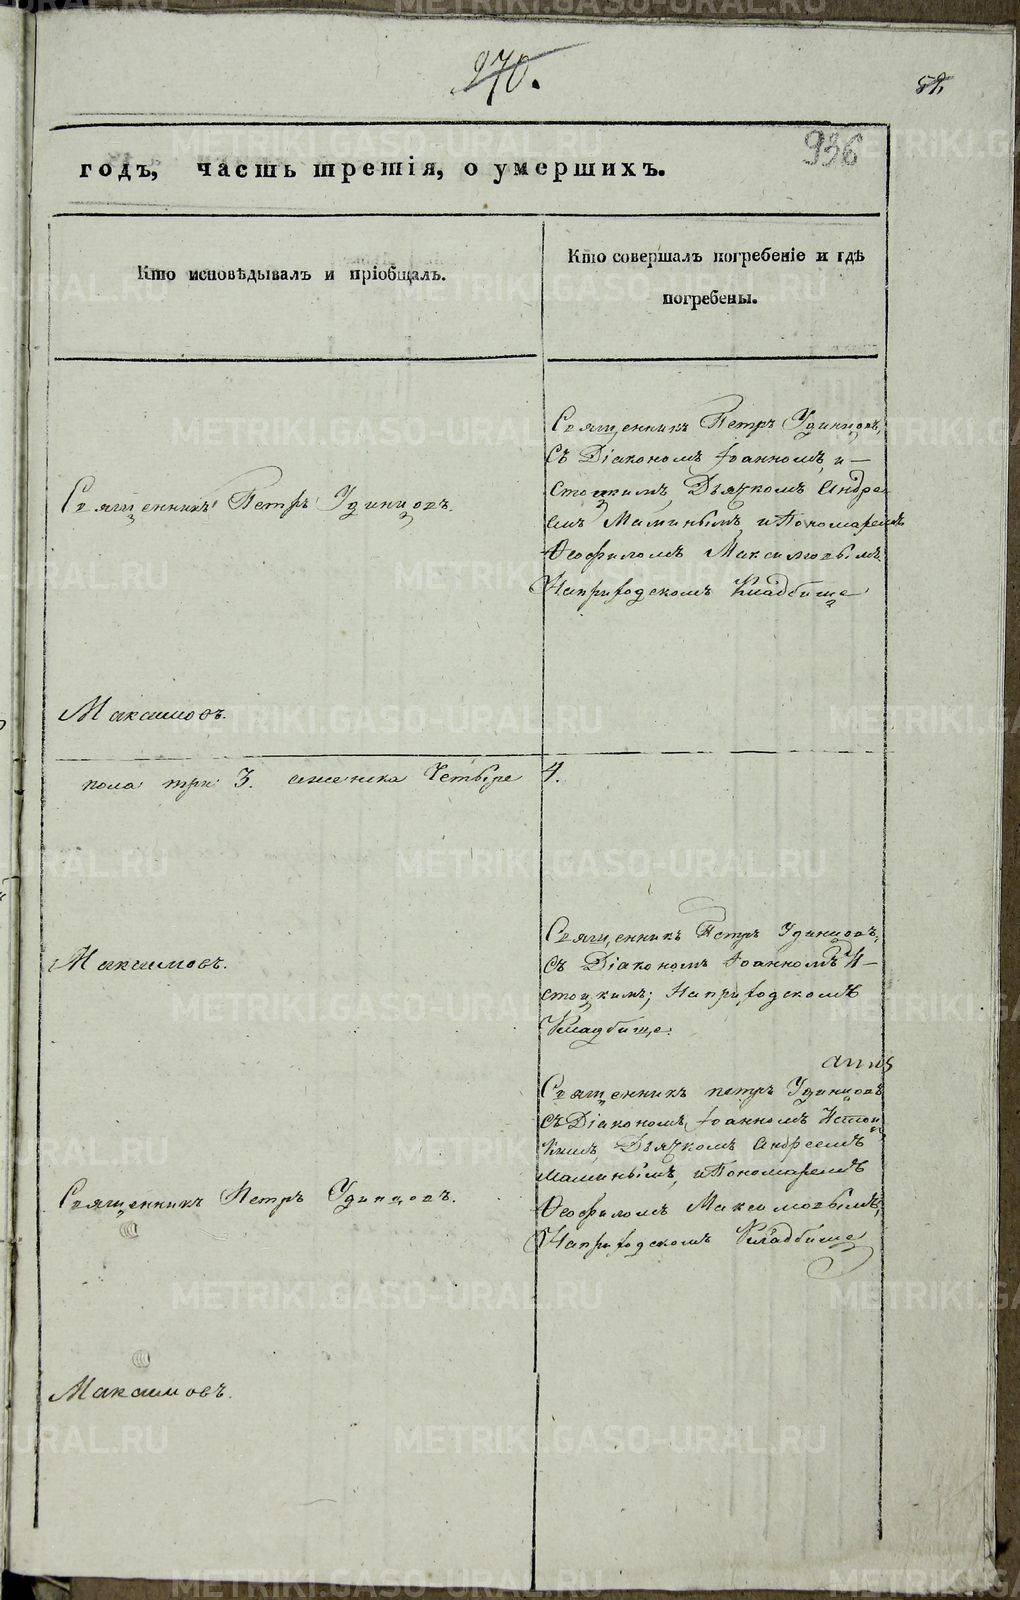 270.
936
годъ, часть третія, о умершихъ.
Кто исповѣдывалъ и пріобщалъ.
Кто совершалъ погребеніе и гдѣ
погребены.
Священникъ Петръ Удинцовъ,
съ Діакономъ Іоанномъ и—
стоцкимъ, Дьячкомъ Андре
Священникъ Петръ Удинцовъ.
емъ Маминымъ, и Пономаремъ
Ѳеофиломъ Максимовымъ
На приходскомъ Кладбище
Максимовъ.
пола три 3. а женска Четыре 4.
Священникъ Петръ Удинцовъ,
Максимовъ.
съ Діакономъ Іоанномъ И—
стоцкимъ; На приходскомъ
Кладбище.
Священникъ петръ Удинцовъ
съ Діакономъ Іоанномъ Истоц
кимъ, Дьячкомъ Андреемъ
Маминымъ, и Пономаремъ
Священникъ Петръ Удинцовъ.
Ѳеофиломъ Максимовымъ,
На приходскомъ Кладбище
Максимовъ.
METRIKI.GASO-URAL.RU